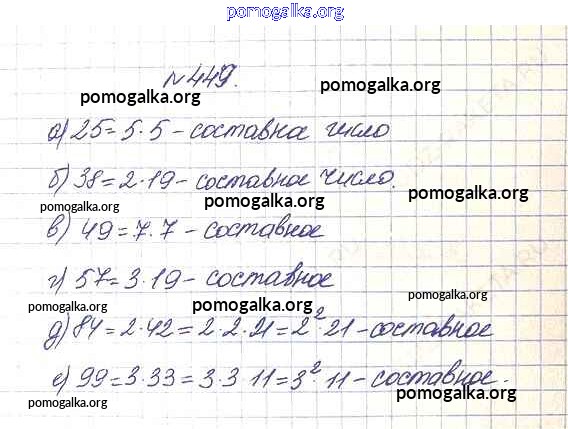 pomogalka.org
№449.
pomogalka.org pomogalka.org
а) 25=5·5 - составное число
б) 38=2·19 - составное число.
pomogalka.org pomogalka.org pomogalka.org
в) 49=7·7 - составное
г) 57=3·19 - составное
pomogalka.org pomogalka.org pomogalka.org
д) 84=2·42=2·2·21=2²·21 - составное
е) 99=3·33=3·3·11=3²·11 - составное.
pomogalka.org pomogalka.org